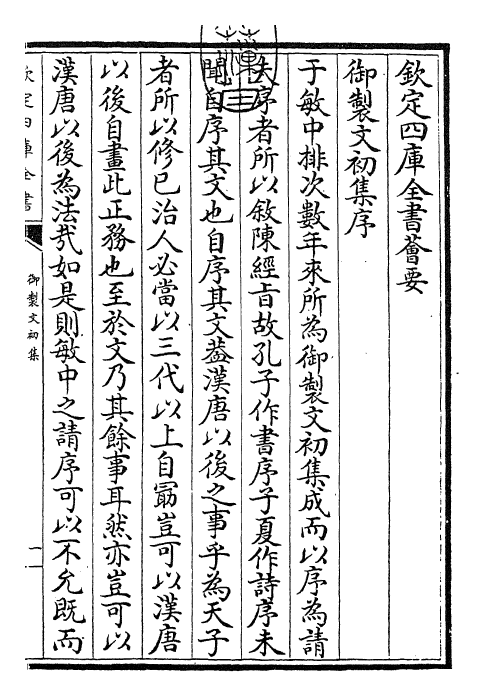 欽定四庫全書薈要
御製文初集序
于敏中排次數年來所為御製文初集成而以序為請
夫序者所以敘陳經旨故孔子作書序子夏作詩序未
聞自序其文也自序其文葢漢唐以後之事乎為天子
者所以修已治人必當以三代以上自勖豈可以漢唐
以後自畫此正務也至於文乃其餘事耳然亦豈可以
漢唐以後為法哉如是則敏中之請序可以不允既而
欽定四庫全書
御製文初集
一